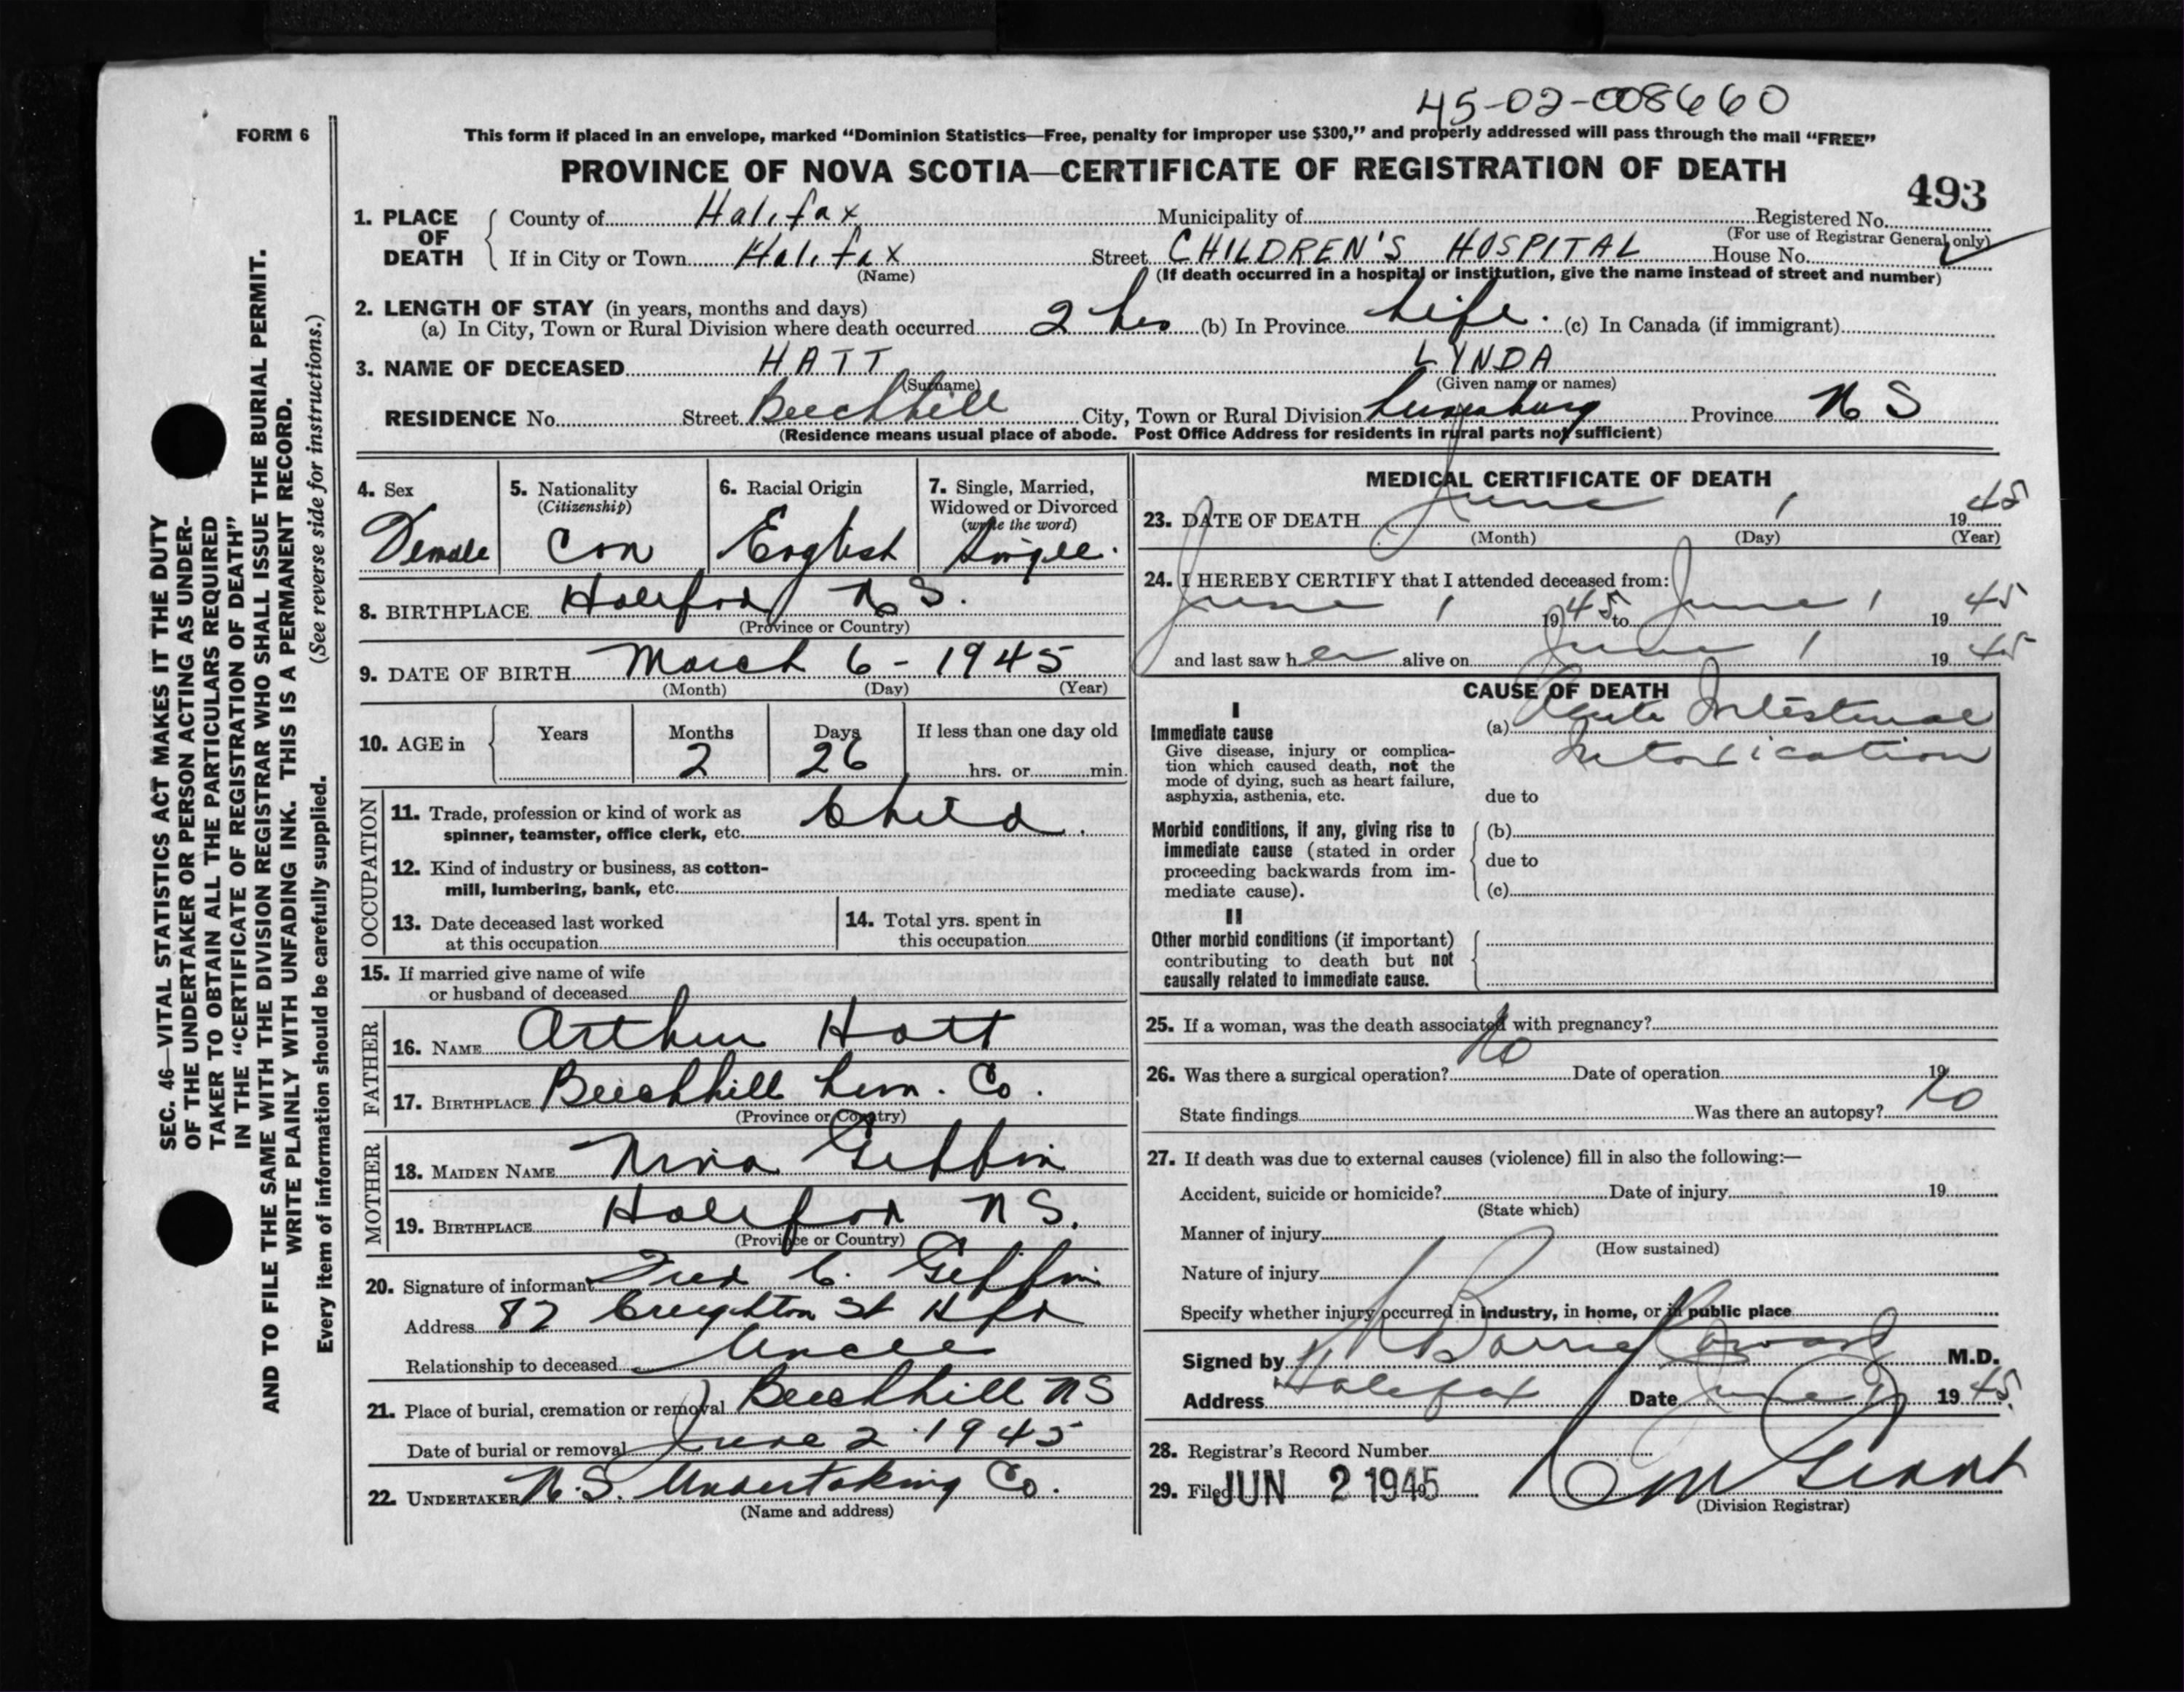 45-02-008660
FORM 6
This form if placed in an envelope, marked “Dominion Statistics—Free, penalty for improper use $300,” and properly addressed will pass through the mail “FREE”
PROVINCE OF NOVA SCOTIA—CERTIFICATE OF REGISTRATION OF DEATH
493
1. PLACE OF DEATH
County of Halifax Municipality of Registered No.
(For use of Registrar General only)
If in City or Town Halifax Street CHILDREN'S HOSPITAL House No.
(Name) (If death occurred in a hospital or institution, give the name instead of street and number)
2. LENGTH OF STAY (in years, months and days)
(a) In City, Town or Rural Division where death occurred 2 hrs (b) In Province Life. (c) In Canada (if immigrant)
3. NAME OF DECEASED HATT LYNDA
(Surname) (Given name or names)
RESIDENCE No. Street Beechhill City, Town or Rural Division Lunenburg Province N S
(Residence means usual place of abode. Post Office Address for residents in rural parts not sufficient)
4. Sex
Female
5. Nationality
(Citizenship)
Can
6. Racial Origin
English
7. Single, Married,
Widowed or Divorced
(write the word)
Single.
8. BIRTHPLACE Halifax N S.
(Province or Country)
9. DATE OF BIRTH March 6 - 1945
(Month) (Day) (Year)
10. AGE in Years Months Days If less than one day old
2 26 hrs. or min.
OCCUPATION
11. Trade, profession or kind of work as
spinner, teamster, office clerk, etc. Child.
12. Kind of industry or business, as cotton-
mill, lumbering, bank, etc.
13. Date deceased last worked
at this occupation
14. Total yrs. spent in
this occupation
15. If married give name of wife
or husband of deceased
FATHER
16. NAME Arthur Hatt
17. BIRTHPLACE Beechhill Lun. Co.
(Province or Country)
MOTHER
18. MAIDEN NAME Nina
19. BIRTHPLACE Halifax N S.
(Province or Country)
20. Signature of informant Fred C.
Address 82 Creighton St Hfx
Relationship to deceased Uncle
21. Place of burial, cremation or removal Beechhill N S
Date of burial or removal June 2 1945
22. UNDERTAKER N.S. Undertaking Co.
(Name and address)
MEDICAL CERTIFICATE OF DEATH
23. DATE OF DEATH June 1 1945
(Month) (Day) (Year)
24. I HEREBY CERTIFY that I attended deceased from:
June 1 1945 to June 1 1945
and last saw her alive on June 1 1945
CAUSE OF DEATH
I
Immediate cause
Give disease, injury or complica-
tion which caused death, not the
mode of dying, such as heart failure,
asphyxia, asthenia, etc.
(a) Acute Intestinal
Intoxication
due to
Morbid conditions, if any, giving rise to
immediate cause (stated in order
proceeding backwards from im-
mediate cause).
(b)
due to
(c)
II
Other morbid conditions (if important)
contributing to death but not
causally related to immediate cause.
25. If a woman, was the death associated with pregnancy?
26. Was there a surgical operation? No Date of operation 19
State findings Was there an autopsy? No
27. If death was due to external causes (violence) fill in also the following:—
Accident, suicide or homicide? Date of injury 19
(State which)
Manner of injury
(How sustained)
Nature of injury
Specify whether injury occurred in industry, in home, or in public place
Signed by Barrie Coward M.D.
Address Halifax Date June 1945
28. Registrar's Record Number
29. Filed JUN 2 1945
(Division Registrar)
SEC. 46—VITAL STATISTICS ACT MAKES IT THE DUTY
OF THE UNDERTAKER OR PERSON ACTING AS UNDER-
TAKER TO OBTAIN ALL THE PARTICULARS REQUIRED
IN THE “CERTIFICATE OF REGISTRATION OF DEATH”
AND TO FILE THE SAME WITH THE DIVISION REGISTRAR WHO SHALL ISSUE THE BURIAL PERMIT.
WRITE PLAINLY WITH UNFADING INK. THIS IS A PERMANENT RECORD.
Every item of information should be carefully supplied. (See reverse side for instructions.)